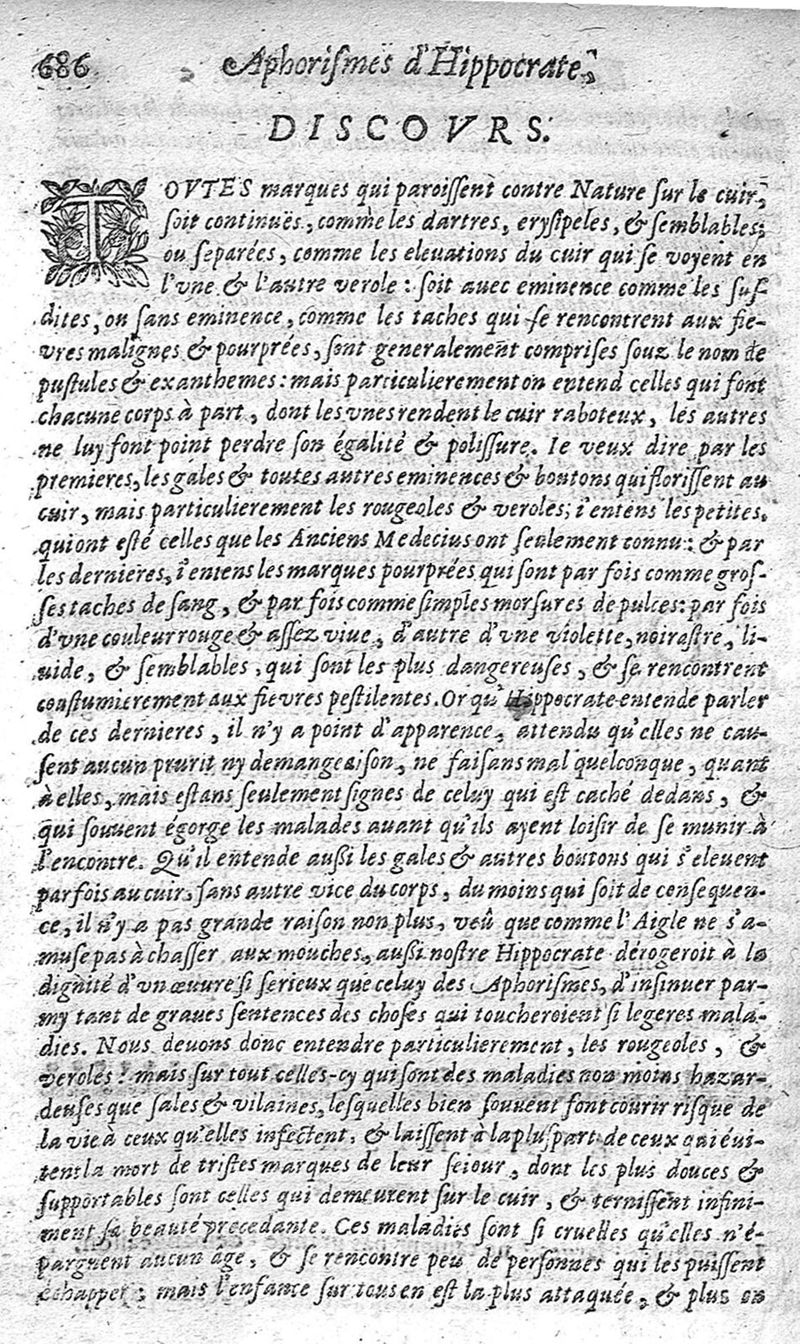 686 Aphoriſmes d'Hippocrate,
DISCOVRS.
TOVTES marques qui paroiſſent contre Nature ſur le cuir,
ſoit continuës, comme les dartres, eryſipeles, & ſemblables;
ou ſeparées, comme les eleuations du cuir qui ſe voyent en
l'vne & l'autre verole : ſoit auec eminence comme les ſuſ-
dites, ou ſans eminence, comme les taches qui ſe rencontrent aux fie-
vres malignes & pourprées, ſont generalement compriſes ſouz le nom de
puſtules & exanthemes : mais particulierement on entend celles qui font
chacune corps à part, dont les vnes rendent le cuir raboteux, les autres
ne luy font point perdre ſon égalité & poliſſure. Ie veux dire par les
premieres, les gales & toutes autres eminences & boutons qui floriſſent au
cuir, mais particulierement les rougeoles & veroles; i'entens les petites,
qui ont eſté celles que les Anciens Medecius ont ſeulement connu : & par
les dernieres, i'entens les marques pourprées qui ſont par fois comme groſ-
ſes taches de ſang, & par fois comme ſimples morſures de pulces : par fois
d'vne couleur rouge & aſſez viue, d'autre d'vne violette, noiraſtre, li-
uide, & ſemblables, qui ſont les plus dangereuſes, & ſe rencontrent
couſtumierement aux fievres peſtilentes. Or qu'Hippocrate entende parler
de ces dernieres, il n'y a point d'apparence, attendu qu'elles ne cau-
ſent aucun prurit ny demangeaiſon, ne faiſans mal quelconque, quant
à elles, mais eſtans ſeulement ſignes de celuy qui eſt caché dedans, &
qui ſouuent égorge les malades auant qu'ils ayent loiſir de ſe munir à
l'encontre. Qu'il entende auſſi les gales & autres boutons qui s'eleuent
par fois au cuir, ſans autre vice du corps, du moins qui ſoit de conſequen-
ce, il n'y a pas grande raiſon non plus, veû que comme l'Aigle ne s'a-
muſe pas à chaſſer aux mouches, auſſi noſtre Hippocrate dérogeroit à la
dignité d'vn œuure ſi ſerieux que celuy des Aphoriſmes, d'inſinuer par-
my tant de graues ſentences des choſes qui toucheroient ſi legeres mala-
dies. Nous deuons donc entendre particulierement, les rougeoles, &
veroles : mais ſur tout celles-cy qui ſont des maladies non moins hazar-
deuſes que ſales & vilaines, leſquelles bien ſouuent font courir riſque de
la vie à ceux qu'elles infectent, & laiſſent à la pluſpart de ceux qui éui-
tent la mort de triſtes marques de leur ſejour, dont les plus douces &
ſupportables ſont celles qui demeurent ſur le cuir, & terniſſent infini-
ment ſa beauté precedante. Ces maladies ſont ſi cruelles qu'elles n'é-
pargnent aucun âge, & ſe rencontre peu de perſonnes qui les puiſſent
échapper ; mais l'enfance ſur tous en eſt la plus attaquée, & plus en